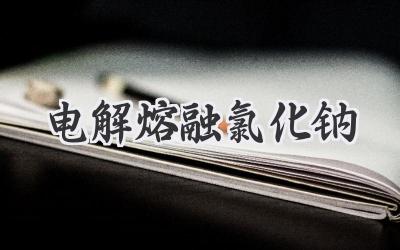 电解熔融氯化钠